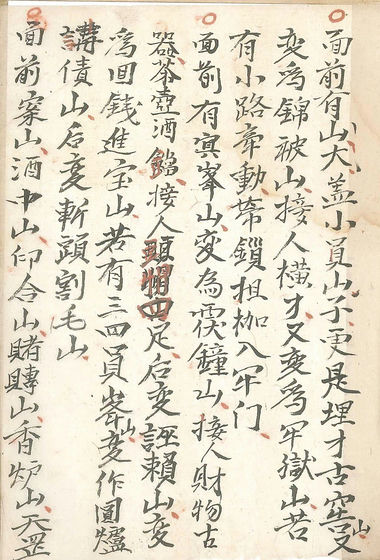 面前有山大盖小員山子更是埋才古窖又山
变爲錦被山接人橫才又变爲牢獄山若
有小路帝動帶鎖担枷入牢门
面前有寞峯山变為霓鐘山接人財物古
器茶壺酒 接人 足后变誣賴山变
爲回錢進宝山若有三四員峯山变作圓爐
講債山后变斬頭割毛山
面前案山酒中山仰合山賭賻山香炉山天罡